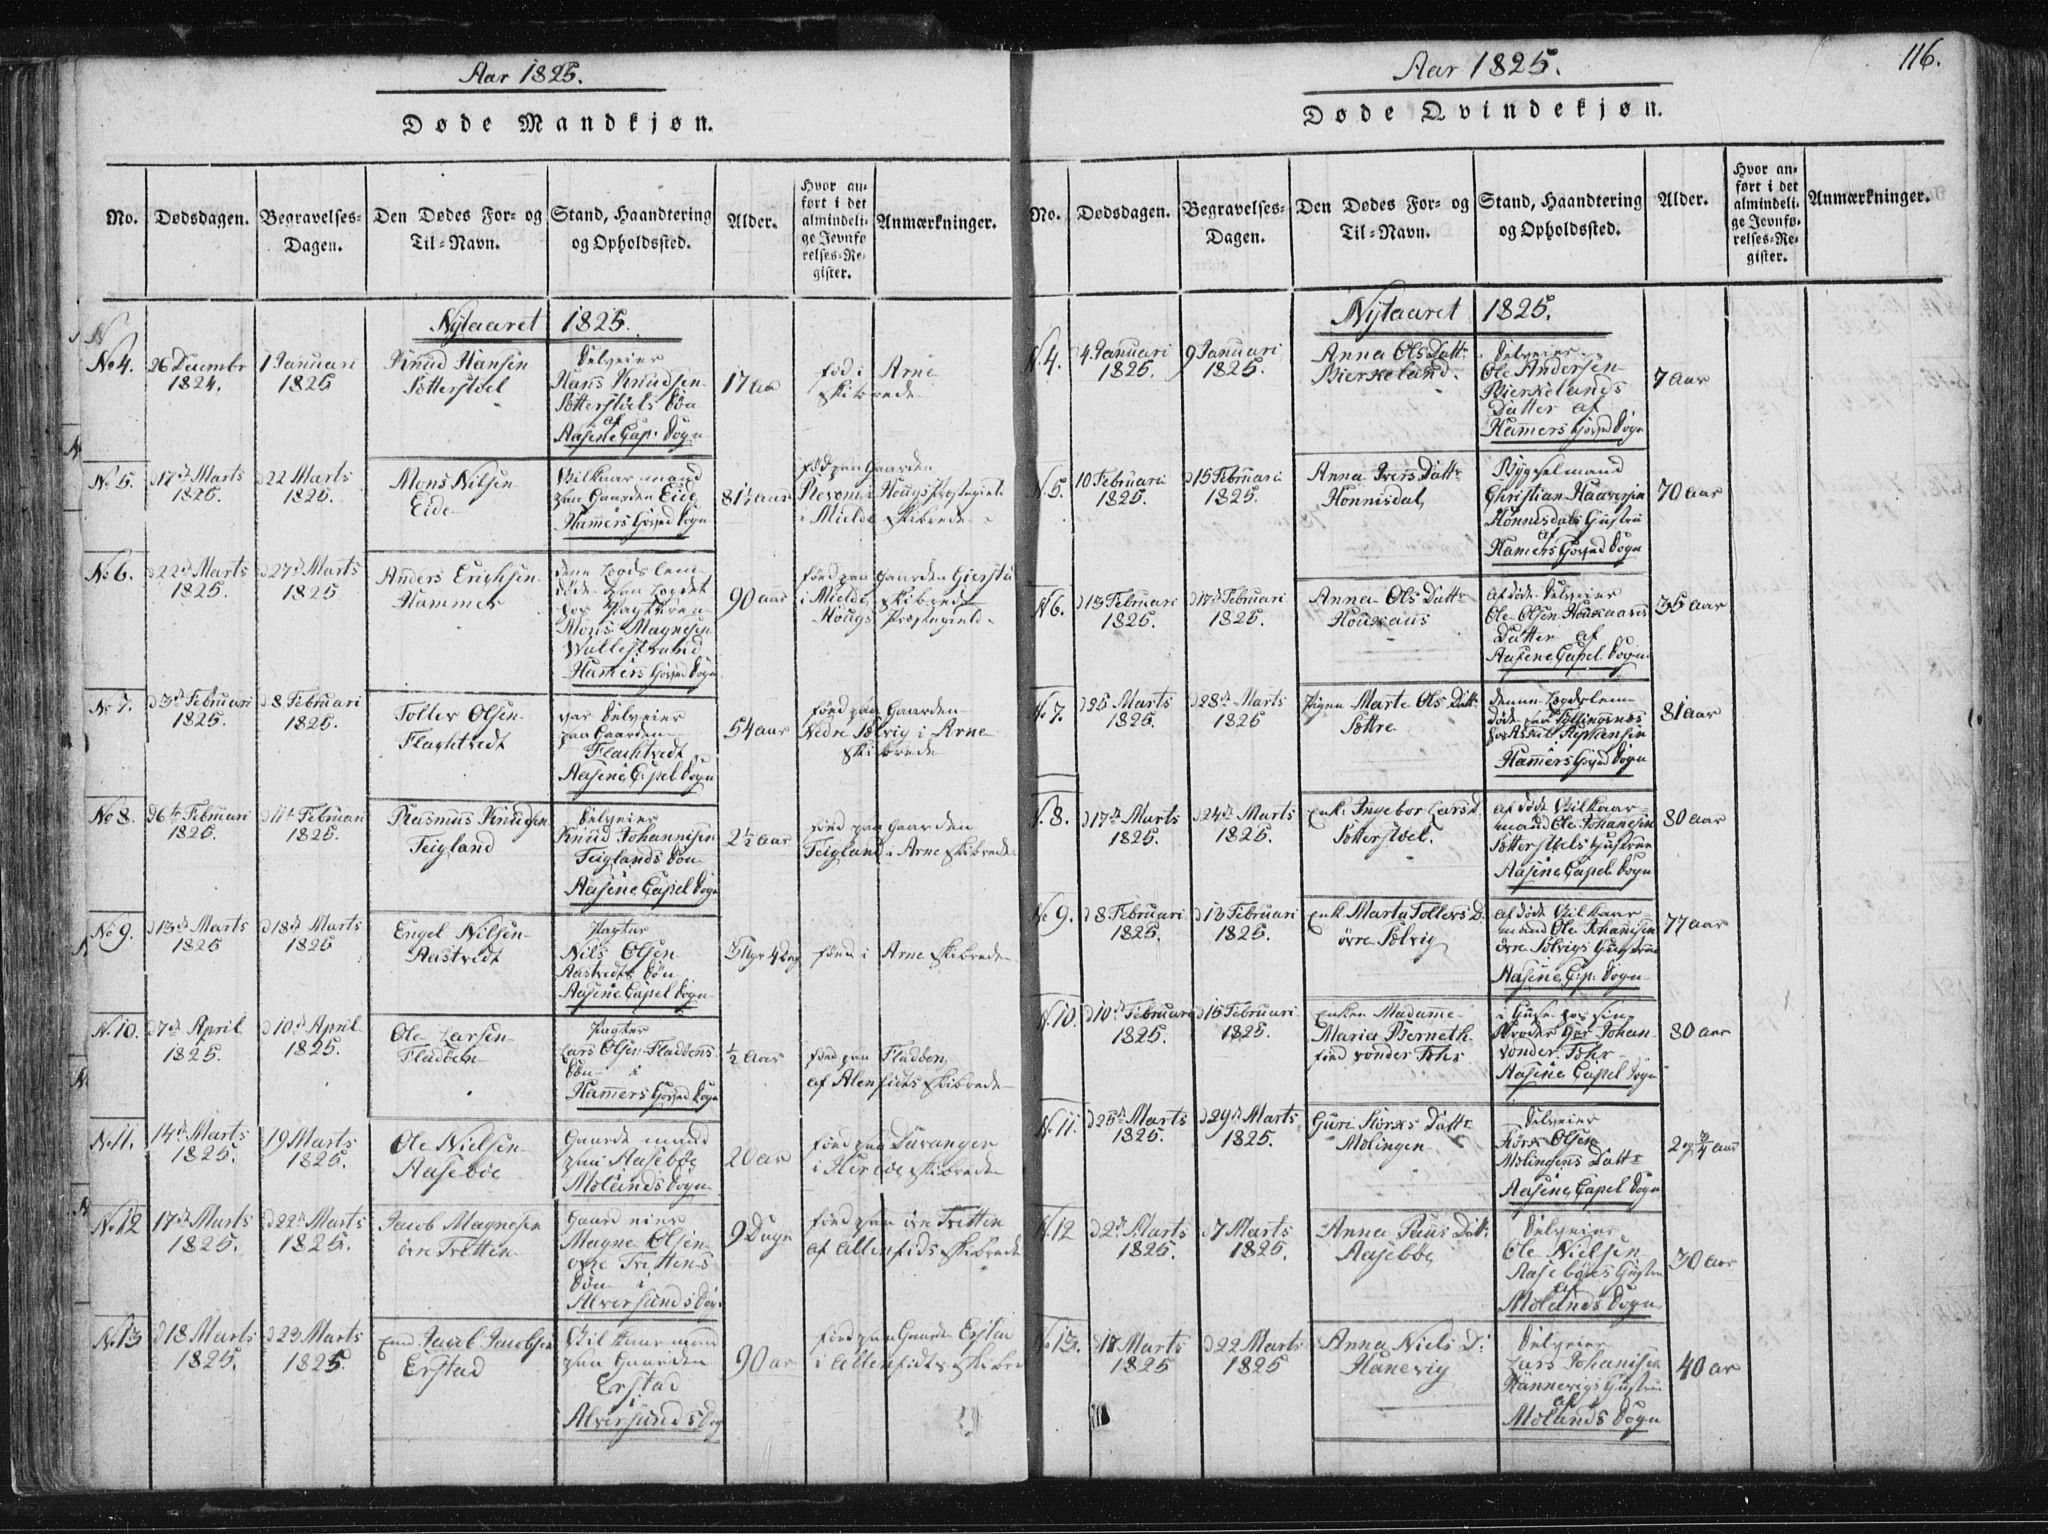 Aar 1825.
Døde Mandkjøn.
No.
Dødsdagen.
Begravelses-
Dagen.
Den Dødes For- og
Til-Navn.
Stand, Haandtering
og Opholdssted.
Alder.
Hvor an-
ført i det
almindeli-
ge Jevnfø
relses-Re-
gister.
Anmærkninger.
Nytaaret 1825.
No 4.
26 Decembr
1824.
1 Januari
1825
Knud Hansen
Sotterstoel
Selveier
Hans Knudsen
Sotterstoels Søn
af
Aasene Cap: Sogn
17 aar
fød i Arne
Skibrede
No 5.
d 17de Marts
1825.
d 22 Marts
1825.
Mons Nilsen
Eide
Vilkaar mand
paa Gaarden Eide
Hamers Hovsed Sogn
81½ aar
fød paa Gaarden
i Hougs Præstegield
i Mielde Skibrede
No 6.
d 22de Marts
1825.
d 27de Marts
1825.
Anders Erichsen
Hammer
Mons Magnesen
Hamers Hovsed Sogn
90 aar
fød paa Gaarden
i Mielde Skibrede
Hougs Præstegield
No 7.
d 3de Februari
1825.
d 8 Februari
1825.
Toller Olsen
Flachtvedt
var Selveier
paa Gaarden
Flachtvedt
Aasene Capel Sogn
54 aar
fød paa Gaarden
Nedre Sølvig i Arne
Skibrede
No 8.
d 6te Februari
1825.
d 11te Februari
1825.
Rasmus Knudsen
Teigland
Selveier
Knud Johannisen
Teiglands Søn
Aasene Capel Sogn
2½ aar
fød paa Gaarden
Teigland i Arne Skibrede
No 9.
d 13de Marts
1825
d 18de Marts
1825
Engel Nilsen
Aastvedt
Pagter
Nils Olsen
Aastvedts Søn
Aasene Capel Sogn
fød i Arne Skibrede
No. 10.
d 7de April
1825.
d 10de April
1825.
Ole Larsen
Fladøen
Pagter
Lars Olsen Fladøens
Søn i
Hamers Hovsed Sogn
½ Aar
fød paa Fladøen
af Alenfiets Skibrede
No. 11.
14de Marts
1825.
19 Marts
1825.
Ole Nielsen
Aasebøe
Gaardmand
paa Aasebøe
Molands Sogn
20 ar
fød paa
i Herløe Skibrede
No 12
17de Marts
1825.
d 22de Marts
1825.
Jacob Magnesen
øvre Tvetten
Gaardeier
Magne Olsen
øvre Tvettens
Søn i
Alversunds Sogn
9 Dage
fød paa øvre Tvetten
af Allenfieds Skibrede
No 13
d 18 Marts
1825.
d 23 Marts
1825.
Jacob Jacobsen
Erstad
Vilkaar man
paa Gaarden
Erstad
i
Alversunds Sogn
90 ar
fød paa Gaarden Erstad
i Allenfiets Skibre
116.
Aar 1825.
Døde Qvindekjøn.
No.
Dødsdagen.
Begravelses-
Dagen.
Den Dødes For- og
Til-Navn.
Stand, Haandtering
og Opholdssted.
Alder.
Hvor an-
ført i det
almindeli-
ge Jevnfø-
relses-Re-
gister.
Anmærkninger.
Nytaaret 1825.
N. 4.
4 Januari
1825.
9 Januari
1825.
Anna Ols Datt:
Bierkeland.
Selveier
Ole Andersen
Bierkelands
Datter af
Hamers Hovsed Sogn
7 Aar
N. 5.
10 Februari
1825.
d 15 Februari
1825.
Anna Ivers Datt:
Honnisdal
Bygselmand
Christian Haavesen
Honnisdals Hustru
af
Hamers Hovsed Sogn
70 aar
N 6.
d 13 Februari
1825.
d 17de Februari
1825.
Anna Ols Datt:
Houxaas
Af døde Selveier
Ole Olsen Houxaas
Datter af
Aasene Capel Sogn
35 aar
No 7.
d 25 Marts
1825.
d 28de Marts
1825
Pigen Marte Ols Datt:
Sottre
Hamers Hovsed Sogn
81 aar
N. 8.
d 17de Marts
1825.
d 24de Marts
1825.
Enk: Ingebor Lars D
Sotterstoel.
af døde Vilkaar
mand Ole Johanesen
Sotterstoels Hustrue
Aasene Capel Sogn
80 aar
No 9.
d 8 Februari
1825.
d 13 Februari
1825.
Enk: Marta Tollers D:
øvre Sølvig
af døde Vilkaar
mand Ole Johanisen
øvre Sølvigs Hustrue
Aasene Cap: Sogn
77 aar
N. 10.
d 10de Februari
1825.
d 15 Februari
1825.
Enken Madame
Maria Berneth
vonder Fohr
i Huse hos sin
Broder Her Johan
vonder Fohr
Aasene Capel Sogn
80 aar
No 11.
d 25de Marts
1825.
d 29de Marts
1825.
Guri Siurs Datt:
Molingen
Selveier
Siurs Olsen
Molingens Datt:
Aasene Capel Sogn
2 og ¾ aar
N. 12
d 2de Marts
1825.
d 7 Marts
1825.
Anna Datt:
Aasebøe
Selveier
Ole Nielsen
Aasebøes Hustru
af
Molands Sogn
30 aar
No 13.
d 17 Marts
1825
d 22 Marts
1825
Anna Niels D:
Hanevig
Selveier
Lars Johanisen
Hannevigs Hustru
af
Molands Sogn
40 ar